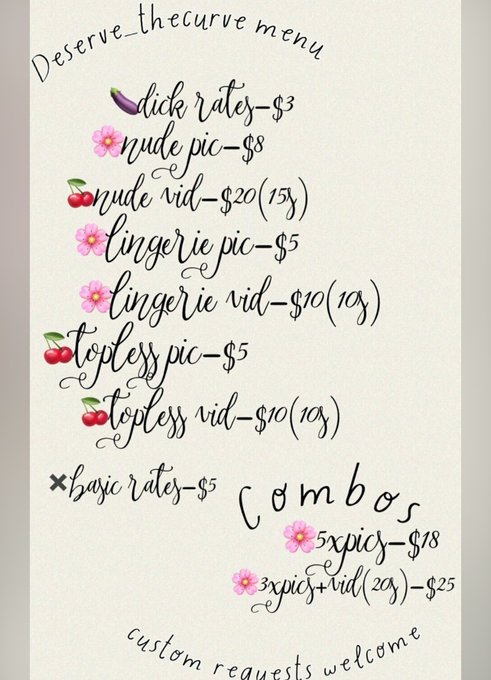 Deserve_thecurve menu
🍆dick rates-$3
🌸nude pic-$8
🍒nude vid-$20(15s)
🌸lingerie pic-$5
🌸lingerie vid-$10(10s)
🍒topless pic-$5
🍒topless vid-$10(10s)
✖basic rates-$5
Combos
🌸5xpics-$18
🌸3xpics+vid(20s)-$25
custom requests welcome